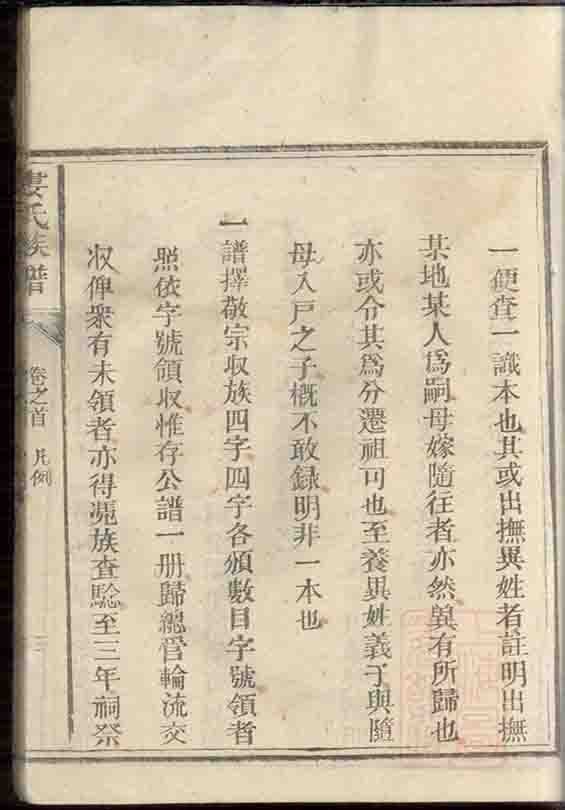 一便查一識本也其或出撫異姓者註明出撫
某地某人爲嗣母嫁隨往者亦然異有所歸也
亦或令其爲分遷祖可也至養異姓義子與隨
母入戶之子概不敢録明非一本也
一譜擇敬宗収族四字四字各頒數目字號領者
照依字號領収惟存公譜一册歸總管輪流交
収俾衆有未領者亦得凴族查驗至三年祠祭
婁氏族譜
卷之首 凡例